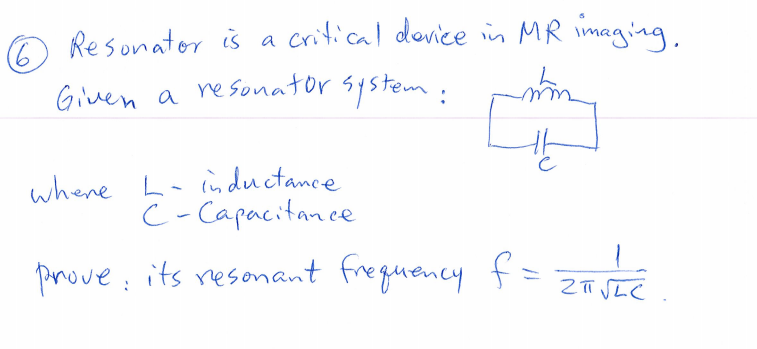 ⑥ Resonator is a critical device in MR imaging.
Given a resonator system:
L
C
where L - inductance
C - Capacitance
prove: its resonant frequency f = 1 / 2π√LC .